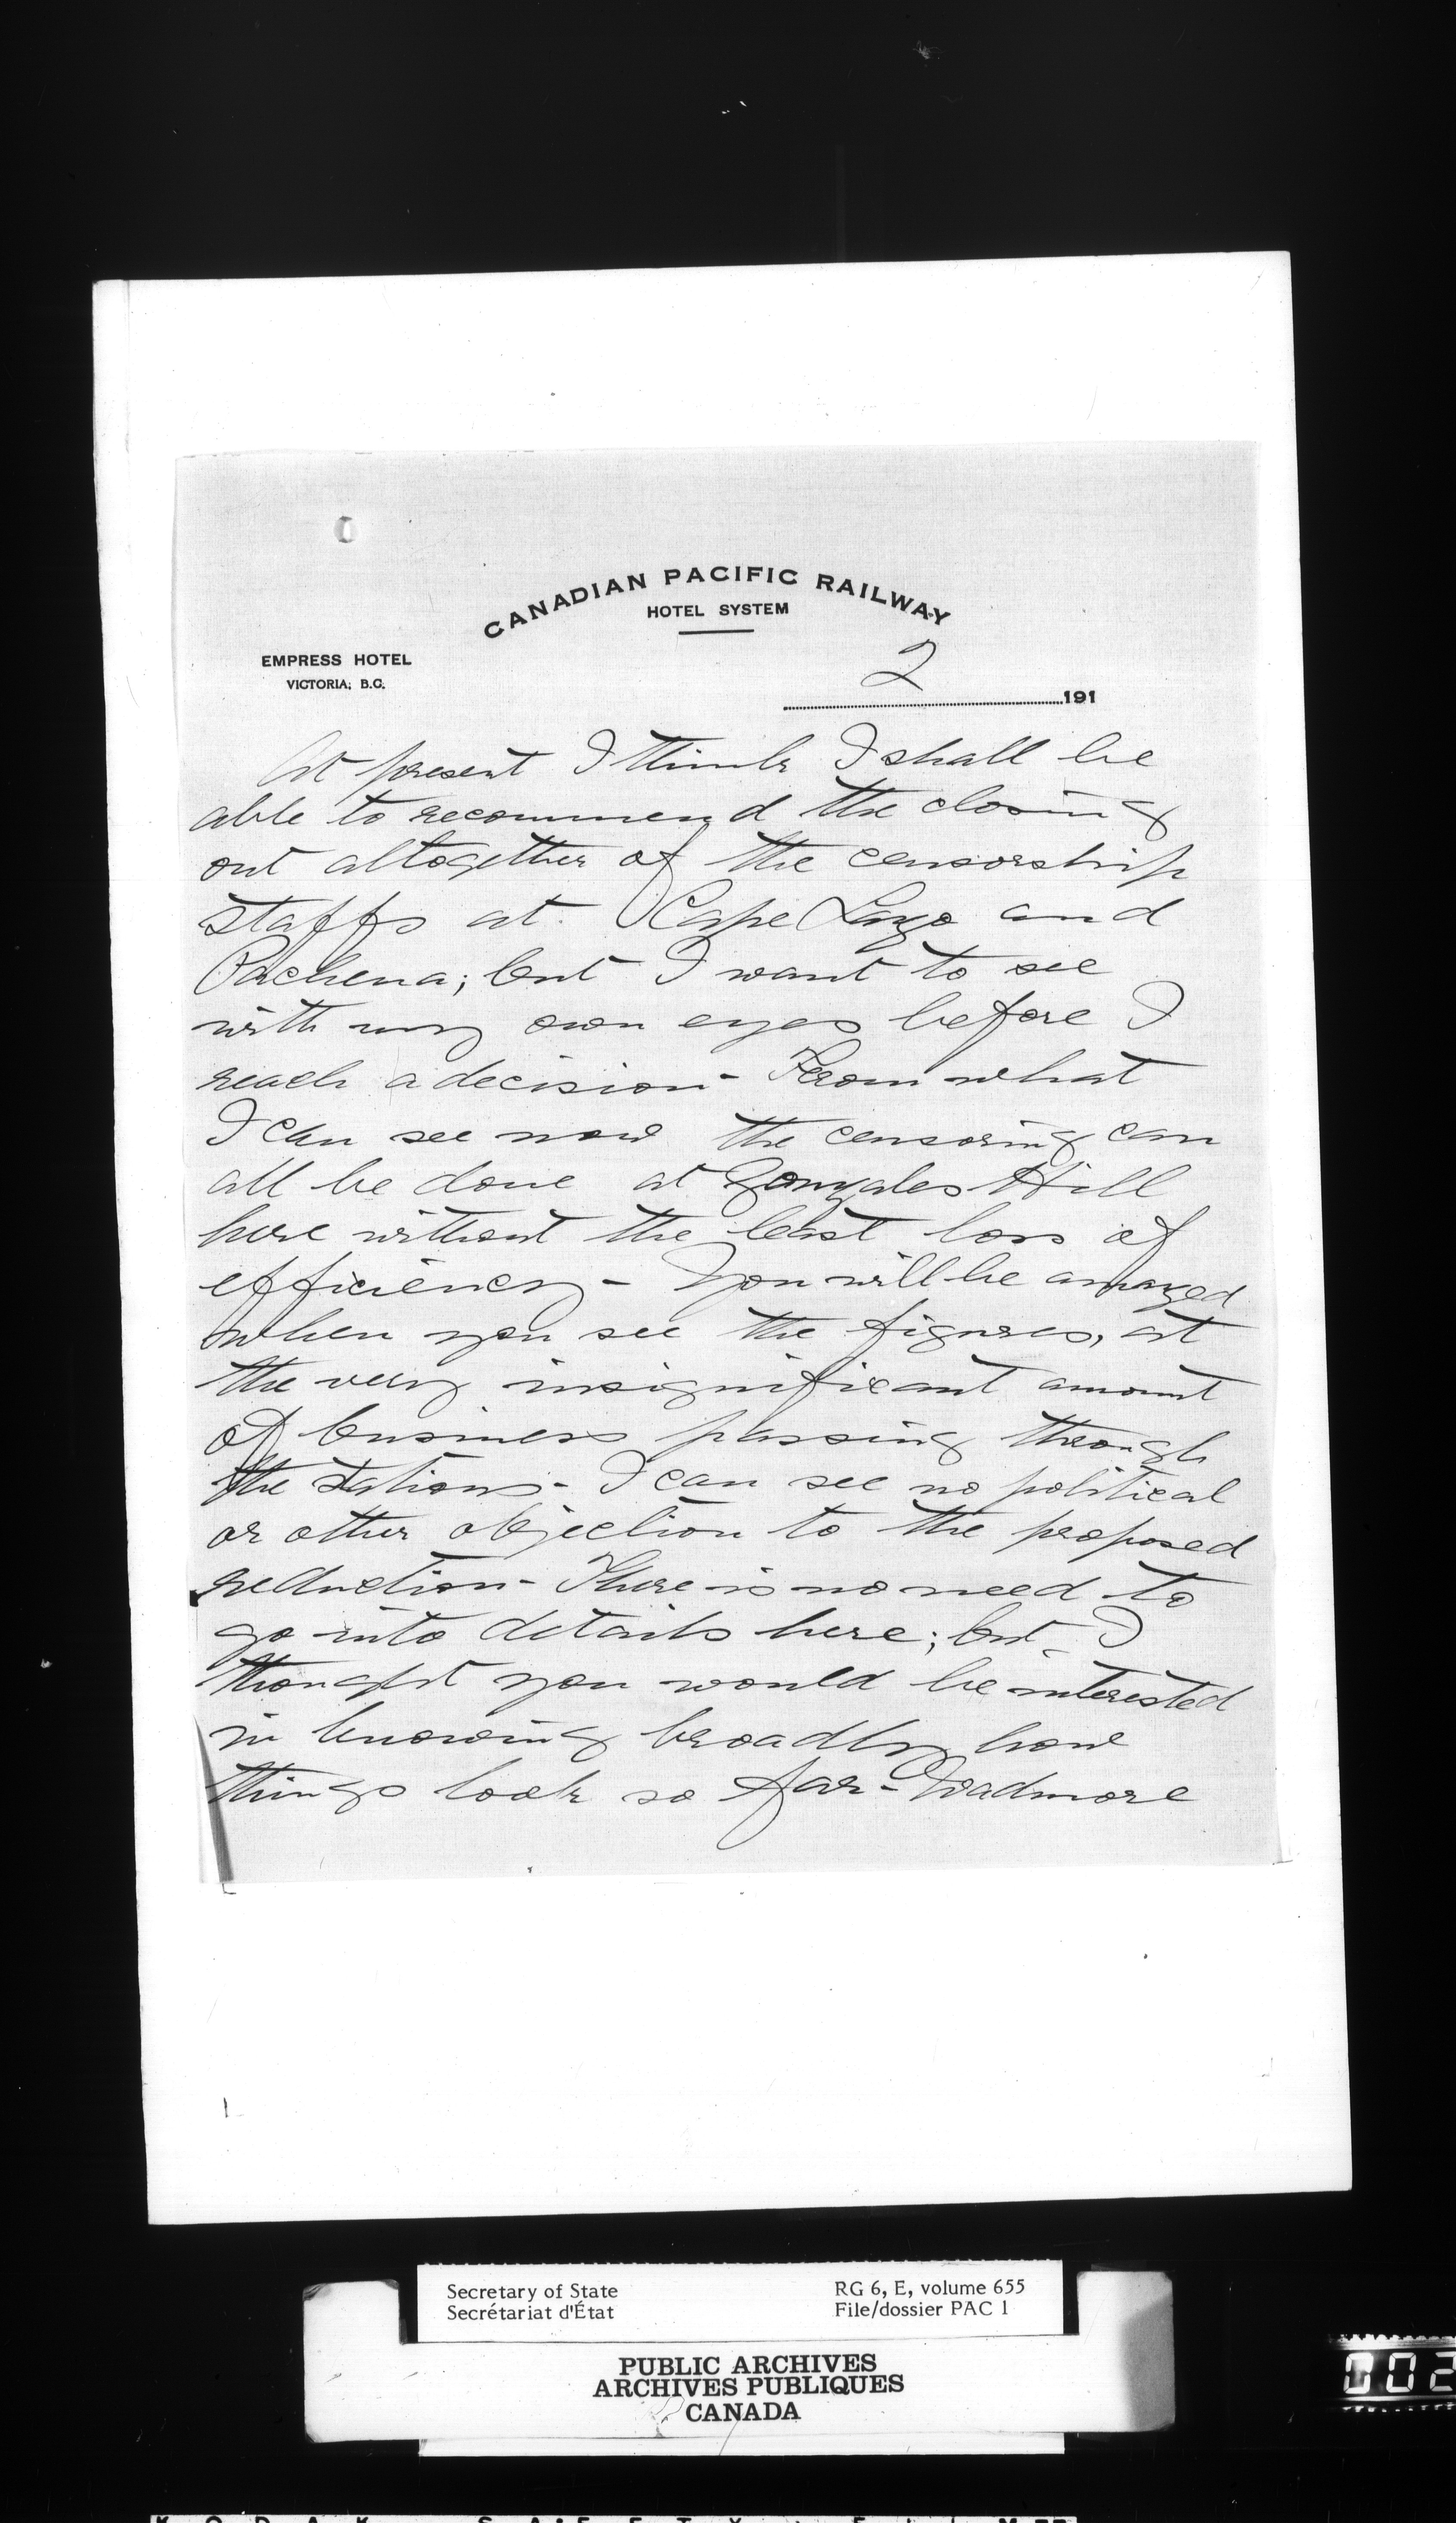 CANADIAN PACIFIC RAILWAY
HOTEL SYSTEM
EMPRESS HOTEL
VICTORIA, B.C.
2
191
At present I think I shall be
able to recommend the closing
out altogether of the censorship
staffs at Cape Lazo and
Pachena; but I want to see
with my own eyes before I
reach a decision - From what
I can see now the censoring can
all be done at Gonzales Hill
here without the least loss of
efficiency - You will be amazed
when you see the figures, at
the very insignificant amount
of business passing through
the stations - I can see no political
or other objection to the proposed
reduction - There is no need to
go into details here; but I
thought you would be interested
in knowing broadly how
things look so far - Wadmore
Secretary of State
Secrétariat d'État
RG 6, E, volume 655
File/dossier PAC 1
PUBLIC ARCHIVES
ARCHIVES PUBLIQUES
CANADA
002
KODAK SAFETY FILM